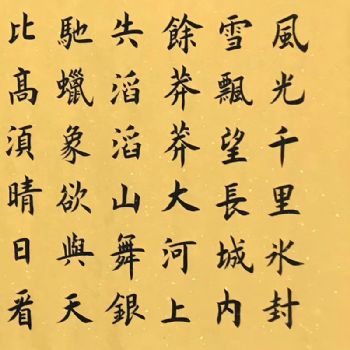 風光千里氷封
雪飄望長城内
餘莽莽大河上
失滔滔山舞銀
馳蠟象欲與天
比高須晴日看